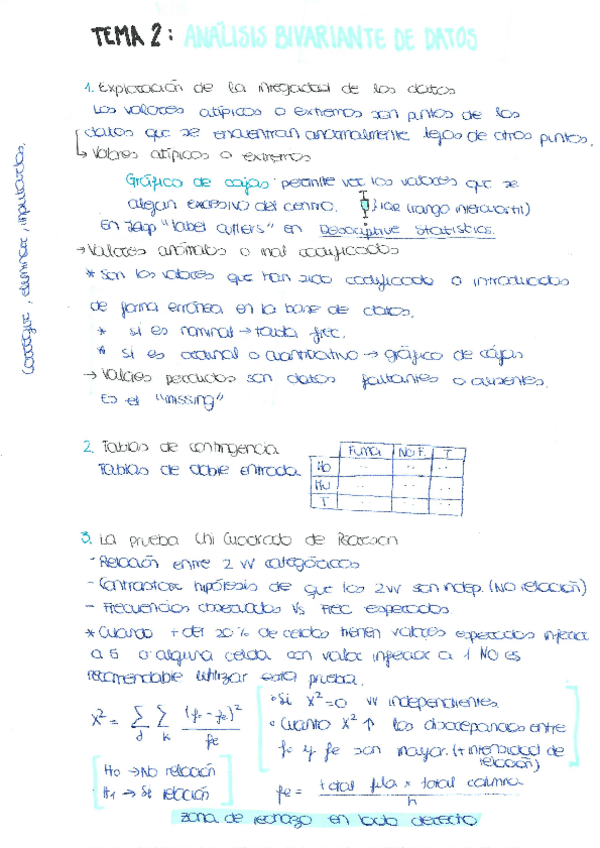 TEMA 2: ANÁLISIS BIVARIANTE DE DATOS
1. Exploración de la integridad de los datos
Los valores atípicos o extremos son puntos de los
datos que se encuentran anormalmente lejos de otros puntos.
↳ Valores atípicos o extremos
Gráfico de cajas: permite ver los valores que se
alejan excesivo del centro. IQR (rango intercuartil)
En Jasp "label outliers" en Descriptive Statistics.
→ Valores anómalos o mal codificados
* Son los valores que han sido codificado o introducidos
de forma errónea en la base de datos.
* si es nominal → tabla frec.
* si es ordinal o cuantitativo → gráfico de cajas
→ Valores perdidos son datos faltantes o ausentes.
Es el "missing"
Corregir, eliminar, imputarlos.
2. Tablas de contingencia
Tablas de doble entrada
Fuma No F. T
Ho .. .. ..
Mu .. .. ..
T .. .. ..
3. La prueba Chi Cuadrado de Pearson
- Relación entre 2 VV categóricas
- Contrastar hipótesis de que las 2 VV son indep. (NO relación)
- Frecuencias observadas Vs Frec esperadas
* Cuando + del 20% de celdas tienen valores esperados inferior
a 5 o alguna celda con valor inferior a 1 NO es
recomendable utilizar esta prueba.
X² = Σ Σ (fo - fe)² / fe
j k
• Si X²=0 VV independientes
• Cuanto X² ↑ las discrepancias entre
fo y fe son mayor. (+ intensidad de
relación)
Ho → No relación
H1 → Sí relación
fe = total fila x total columna / n
zona de rechazo en lado derecho